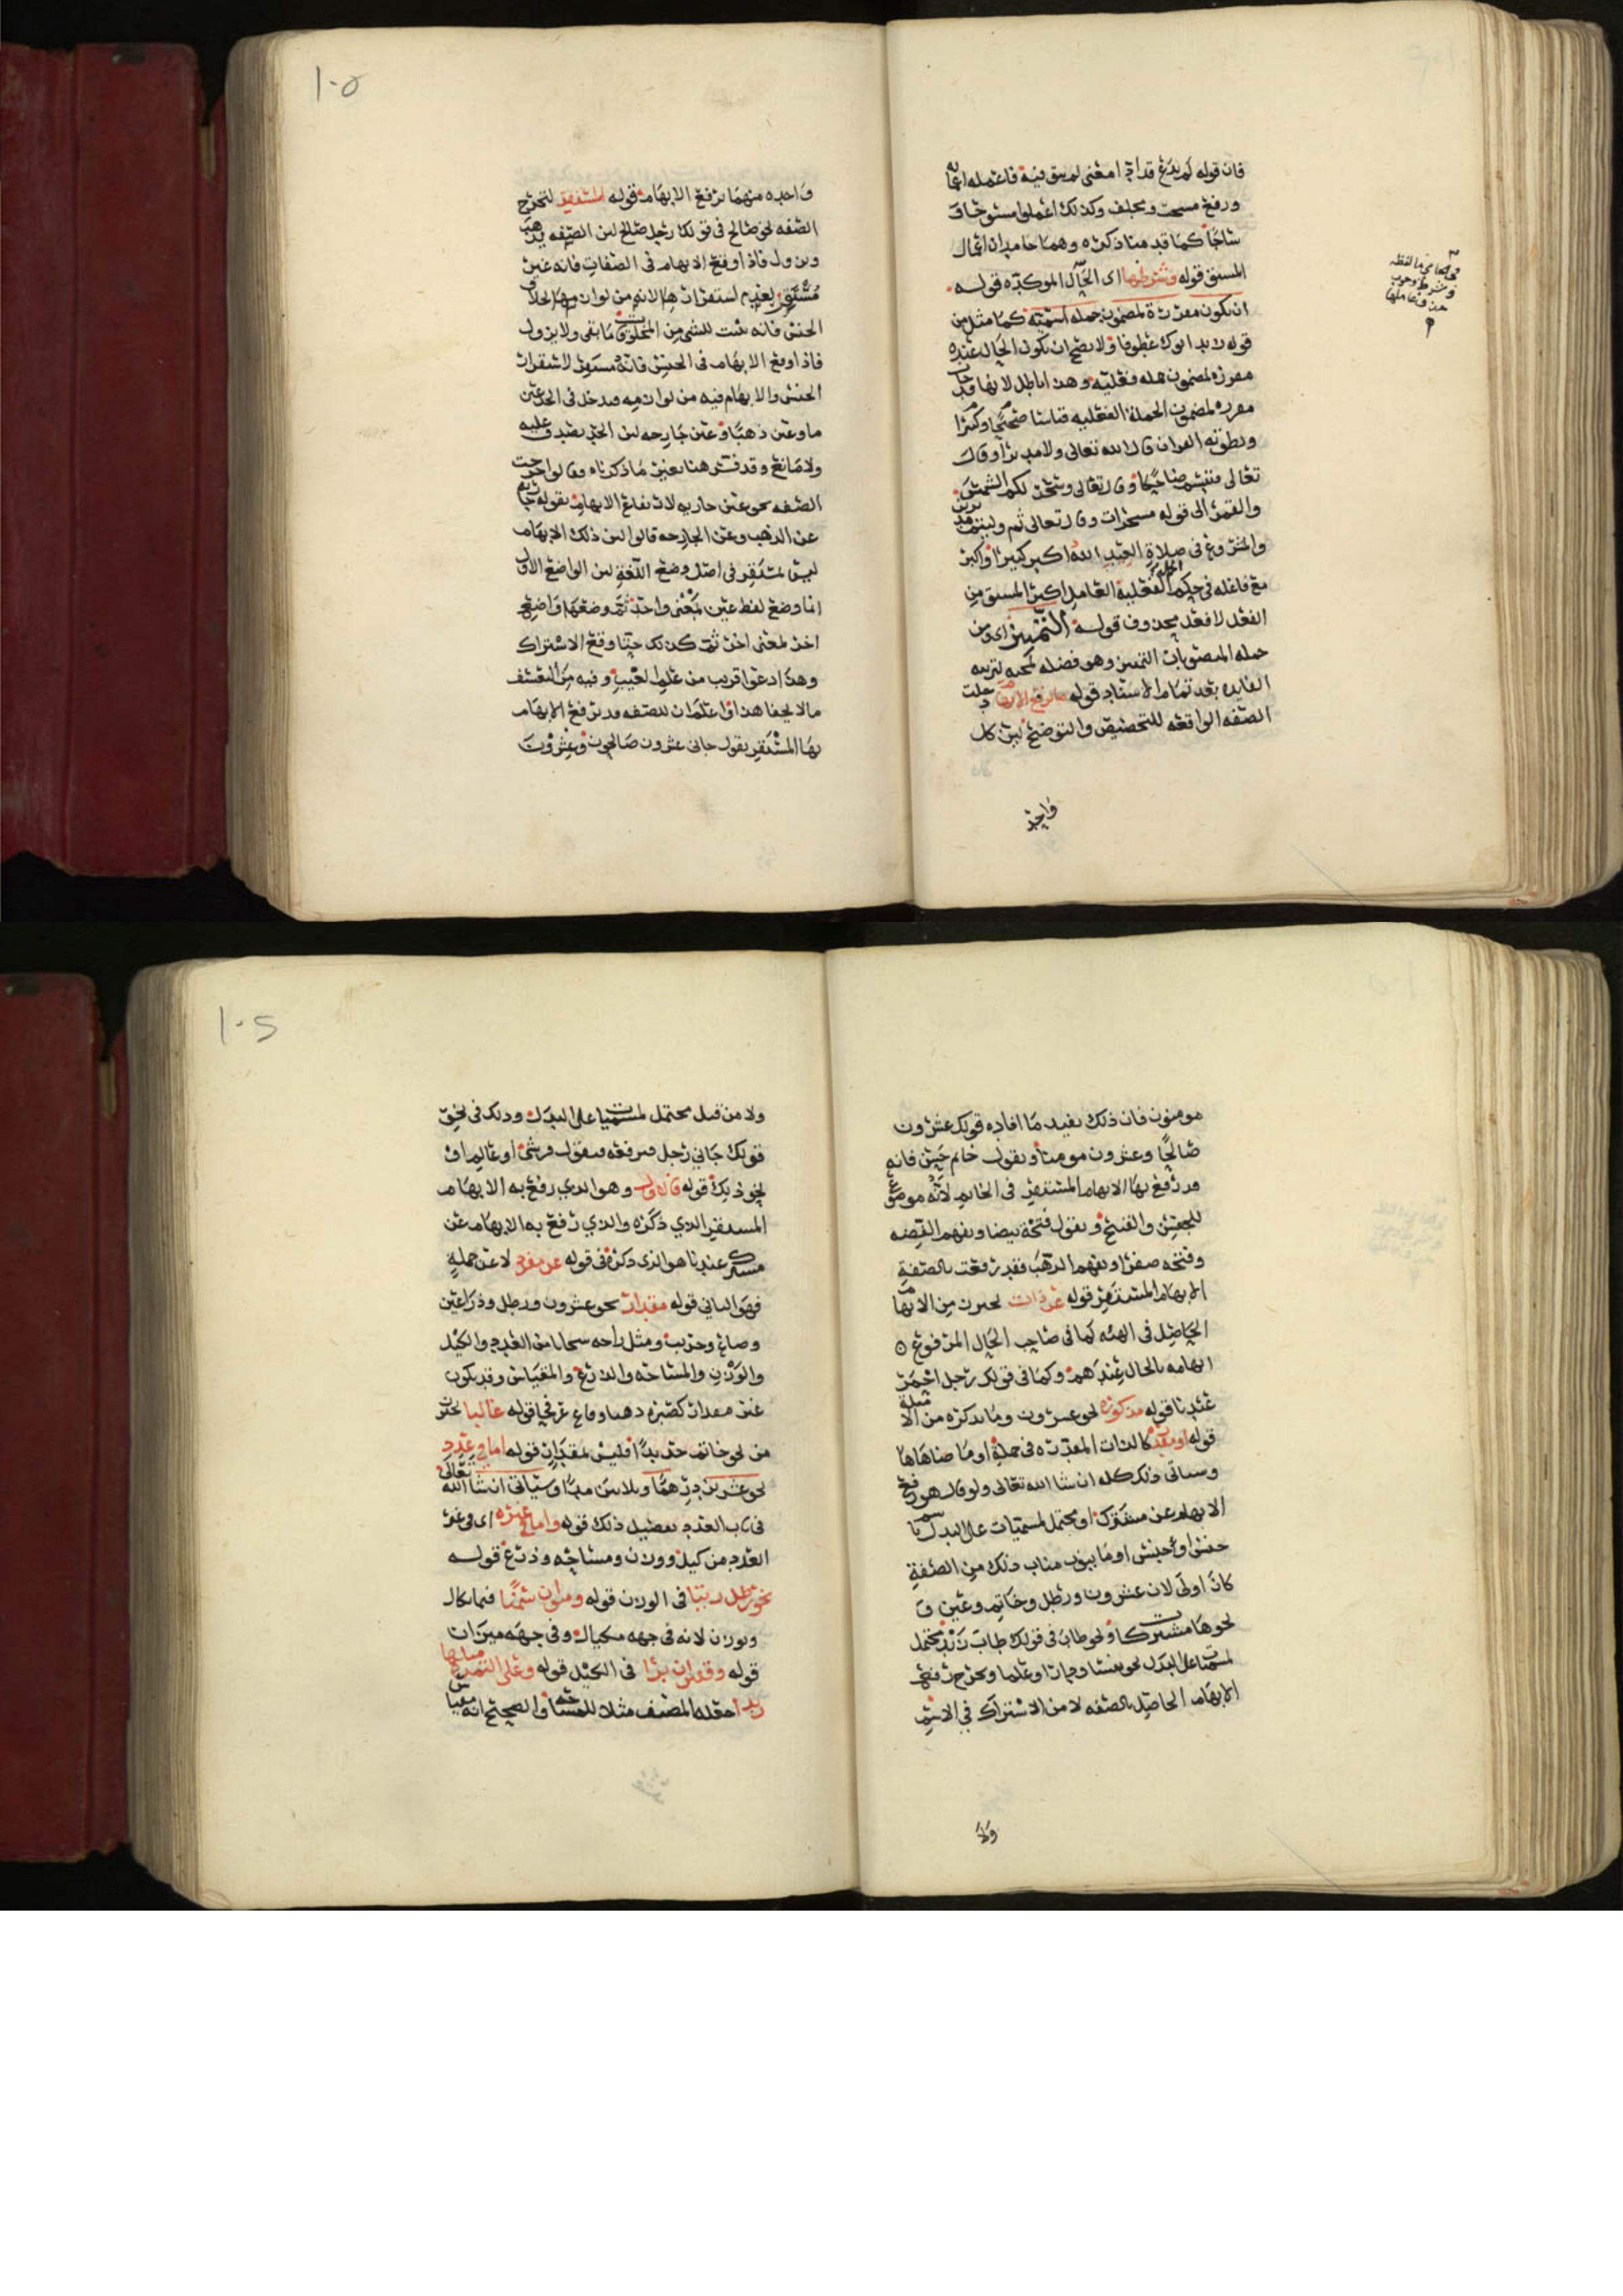 فان قوله لم يدع قد ادى معنى لم يبق فيه فاعمله
ورفع مسحت ومجلف وكذلك اعملوا مستوحاف
شاحا كما قدمنا ذكره وهما جامدان اعمال
المشتق قوله وشرطها اى الحال الموكدة قوله
ان تكون مقررة لمضمون جمله اسميه كما مثل من
قوله زيد ابوك عطوفا ولا يصح ان تكون الحال عنده
مقررة لمضمون جمله فعليه وهذا باطل لانها قد جات
مقررة لمضمون الجملة الفعليه قياسا صحيحا وكثرا
ونطق به القران قال الله تعالى ولا مدبرا وقال
تعالى فتبسم ضاحكا وقال تعالى وسخر لكم الشمس
والقمر الى قوله مسخرات وقال تعالى ثم وليتم مدبرين
والمشروع فى صلاة العيد الله اكبر كبيرا واكبر
مع فاعله فى حكم الجملة الفعلية العامل اكبر المشتق من
الفعل لا فعل محذوف قوله التمييز اى ومن
جمله المنصوبات التمييز وهو فضله لمجيه لتربيه
الفايده بعد تمام الاسناد قوله ما يرفع الابهام دخلت
الصفه الواقعه للتخصيص والتوضيح لين كل
واحده
وشرط وجوب
حذف عاملها
١٠٥
واحده منهما ترفع الابهام قوله المستقر لتخرج
الصفه نحو صالح فى قولك رجل صالح لين الصفه تذهب
وتزول فاذا وقع الابهام فى الصفات فانه غير
مستقر لعدم استقرارها لانه من لوازمها بخلاف
الجنس فانه يثبت للشى من المخلوقات ما بقى ولا يزول
فاذا وقع الابهام فى الجنس فانه مستقر لاستقرار
الجنس والابهام فيه من لوازمه ويدخل فى الحد عين
ما وعين ذهبا وعين جارحه لين الحد يصدق عليه
ولا مانع وقد فسر هنا بغير ما ذكرناه وقالوا خرجت
الصفه نحو عين جاريه لارتفاع الابهام بقوله جاريه
عن الذهب وعين الجارحه قالوا لين ذلك الابهام
ليس بمستقر فى اصل وضع اللغة لين الواضع الاول
انما وضع لفظ عين لمعنى واحد ثم وضعها واضع
اخر لمعنى اخر ثم كذلك حتا وقع الاشتراك
وهذا دعوا قريب من علم الغيب وفيه من التعسف
ما لا يخفا هذا واعلم ان للصفه قد ترفع الابهام
بها المستقر بقول جاني عشرون صالحون وعشرون
مومنون فان ذلك يفيد ما افاده قولك عشرون
صالحا وعشرون مومنا وبقول خاتم حسن فانه
قد رفع بها الابهام المستقر فى الخاتم لانه موضوع
للجنس والفتح وبقول فتخة بيضا ويفهم الفضه
وفتخه صفرا ويفهم الذهب فقد رفعت بالصفة
الابهام المستقر قوله عن ذات تحرز من الابهام
الحاصل فى الهيئه كما فى صاحب الحال المرفوع
ابهامه بالحال عندهم وكما فى قولك رجل احمر
عندنا قوله مذكورة نحو عشرون وما يذكره من الامثلة
قوله او مقدرة كالذات المقدرة فى جملة او ما ضاهاها
وسياتى ذلك كله ان شا الله تعالى ولو قال هو رفع
الابهام عن مشترك او محتمل لمسميات على البدل باسم
جنس او جنس او ما ينوب مناب ذلك من الصفة
كان اولى لان عشرون ورطل وخاتم وعين و
نحوها مشتركات ونحو طاب فى قولك طاب زيد محتمل
لمسميات على البدل نحو نفسا ودارا وعلما وتخرج رفع
الابهام الحاصل بالصفه لا من الاشتراك فى الاسم
ولا
١٠٦
ولا من قبل محتمل لمسميات على البدل وذلك فى نحو
قولك جاني رجل فترفعه فيقول قرشى او عالم او
نحو ذلك قوله فالاول وهو الذي رفع به الابهام
المستقر الذي ذكره والذي رفع به الابهام عن
مشترك عندنا هو الذى ذكره فى قوله عن مفرد لا عن جملة
فهو الثانى قوله مقدار نحو عشرون ورطل وذراعين
وصاع وجريب ومثل راحه سحابا من العدد والكيل
والوزن والمساحه والذرع والمقياس وقد يكون
غير مقدار كصبره دهبا وقاع عرفجا قوله غالبا تحرز
من نحو خاتم حديدا فليس بمقدار قوله اما فى عدد
نحو عشرين درهما وثلاثين مدا وسياتى ان شا الله تعالى
فى باب العدد تفصيل ذلك قوله واما فى غيره اى فى غير
العدد من كيل ووزن ومساحه وذرع قوله
نحو رطل زيتا فى الوزن قوله ومنوان سمنا فيما يكال
ويوزن لانه فى جهه مكيال وفى جهه ميزان
قوله وقفيزان برا فى الكيل قوله وعلى التمرة مثلها
زبدا جعله المصنف مثلا للمساحه والصحيح انه مقياس